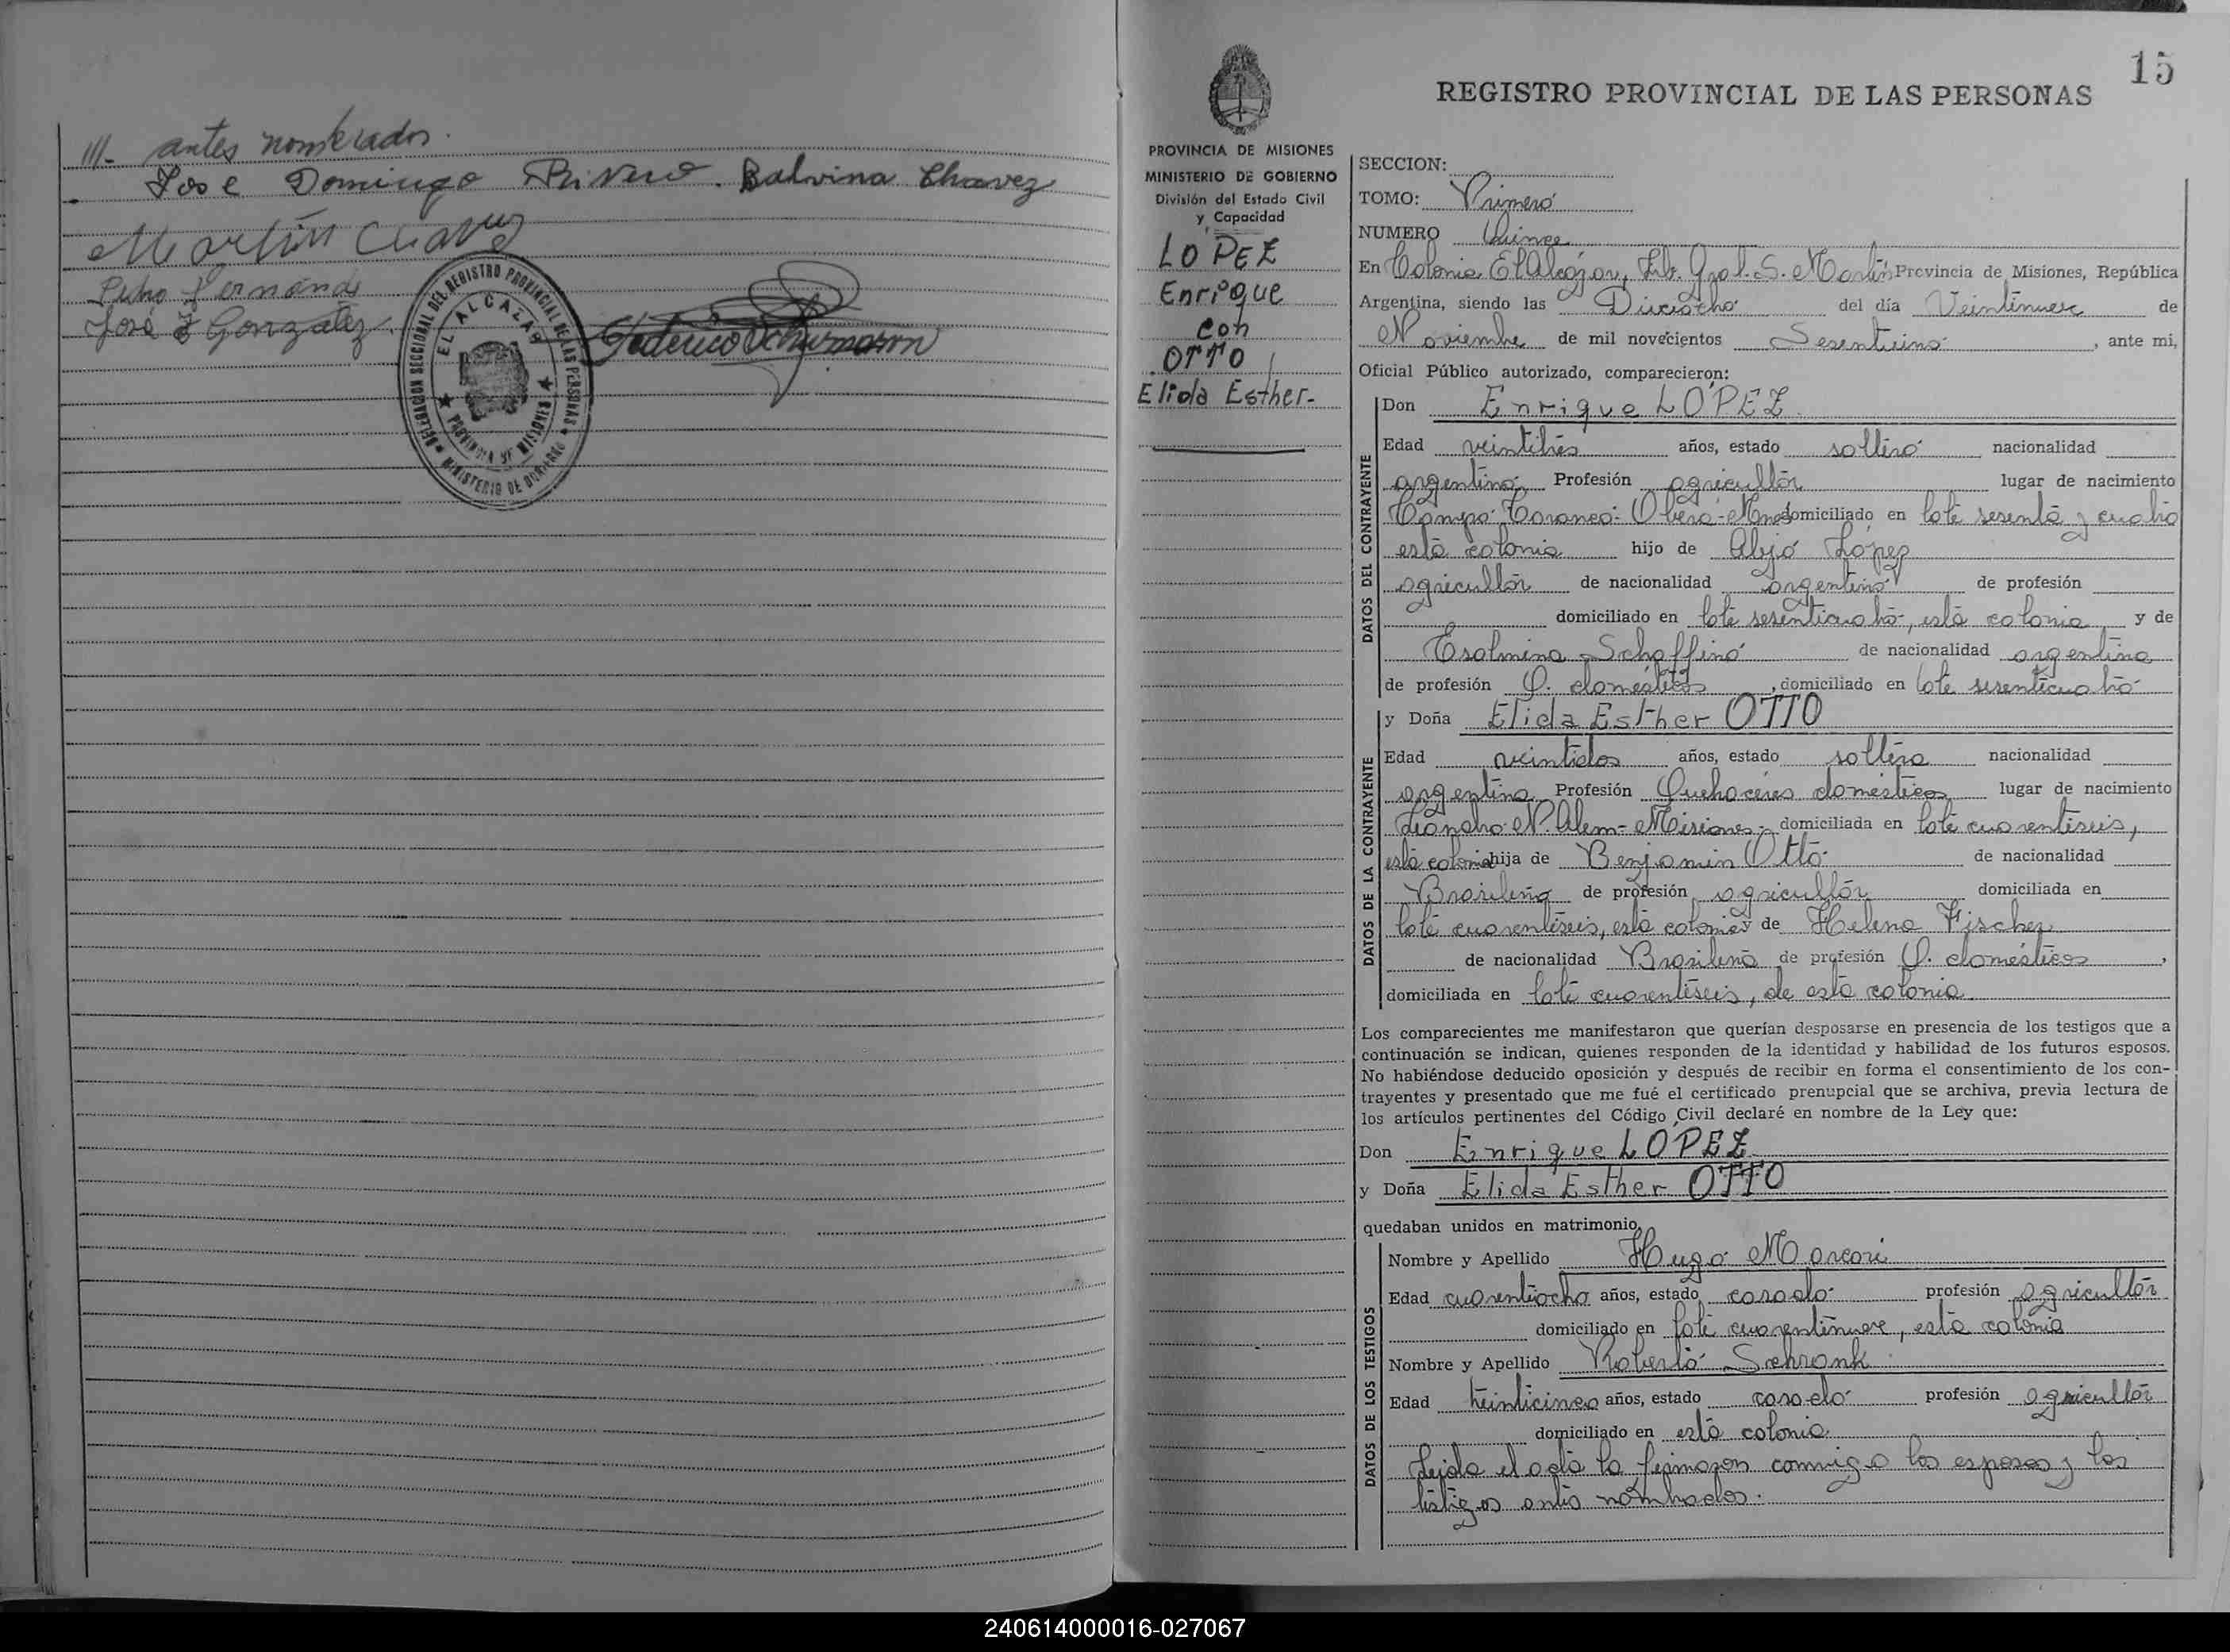 ///- antes nombrados.
Jose Domingo Rivero. Balvina Chavez
Martin Chavez
Pedro Fernande
José F Gonzalez
DELEGACION SECCIONAL DEL REGISTRO PROVINCIAL DE LAS PERSONAS
EL ALCAZAR
PROVINCIA DE MISIONES
MINISTERIO DE GOBIERNO
Federico
15
REGISTRO PROVINCIAL DE LAS PERSONAS
PROVINCIA DE MISIONES
MINISTERIO DE GOBIERNO
División del Estado Civil
y Capacidad
LOPEZ
Enrique
con
OTTO
Elida Esther-
SECCION:
TOMO: Primero
NUMERO Quince
En Colonia El Alcázar, Lib. Gral. S. Martin Provincia de Misiones, República
Argentina, siendo las Dieciocho del día Veintinueve de
Noviembre de mil novecientos Sesentiuno, ante mi,
Oficial Público autorizado, comparecieron:
DATOS DEL CONTRAYENTE
Don Enrique LOPEZ
Edad veintitrés años, estado soltero nacionalidad
argentino Profesión agricultor lugar de nacimiento
Campo - Oberá - Mnes domiciliado en lote sesenta y cuatro
esta colonia hijo de Alejo Lopez
agricultor de nacionalidad argentino de profesión
domiciliado en lote sesenticuatro, esta colonia y de
Schaffino de nacionalidad argentina
de profesión Q. domésticos, domiciliado en lote sesenticuatro
DATOS DE LA CONTRAYENTE
y Doña Elida Esther OTTO
Edad veintidos años, estado soltera nacionalidad
argentina Profesión Quehaceres domésticos lugar de nacimiento
Leandro N. Alem - Misiones - domiciliada en lote cuarentiseis,
esta colonia hija de Benjamin Otto de nacionalidad
Brasileña de profesión agricultor domiciliada en
lote cuarentiseis, esta colonia y de Helena Fischer
de nacionalidad Brasilena de profesión Q. domésticos,
domiciliada en lote cuarentiseis, de esta colonia.
Los comparecientes me manifestaron que querían desposarse en presencia de los testigos que a
continuación se indican, quienes responden de la identidad y habilidad de los futuros esposos.
No habiéndose deducido oposición y después de recibir en forma el consentimiento de los con-
trayentes y presentado que me fué el certificado prenupcial que se archiva, previa lectura de
los artículos pertinentes del Código Civil declaré en nombre de la Ley que:
Don Enrique LOPEZ
y Doña Elida Esther OTTO
quedaban unidos en matrimonio.
DATOS DE LOS TESTIGOS
Nombre y Apellido Hugo Marcori
Edad cuarentiocho años, estado casado profesión agricultor
domiciliado en lote cuarentinueve, esta colonia
Nombre y Apellido Roberto Schronk
Edad treinticinco años, estado casado profesión agricultor
domiciliado en esta colonia.
Leida el acta la firmaron conmigo los esposos y los
testigos antes nombrados.
240614000016-027067